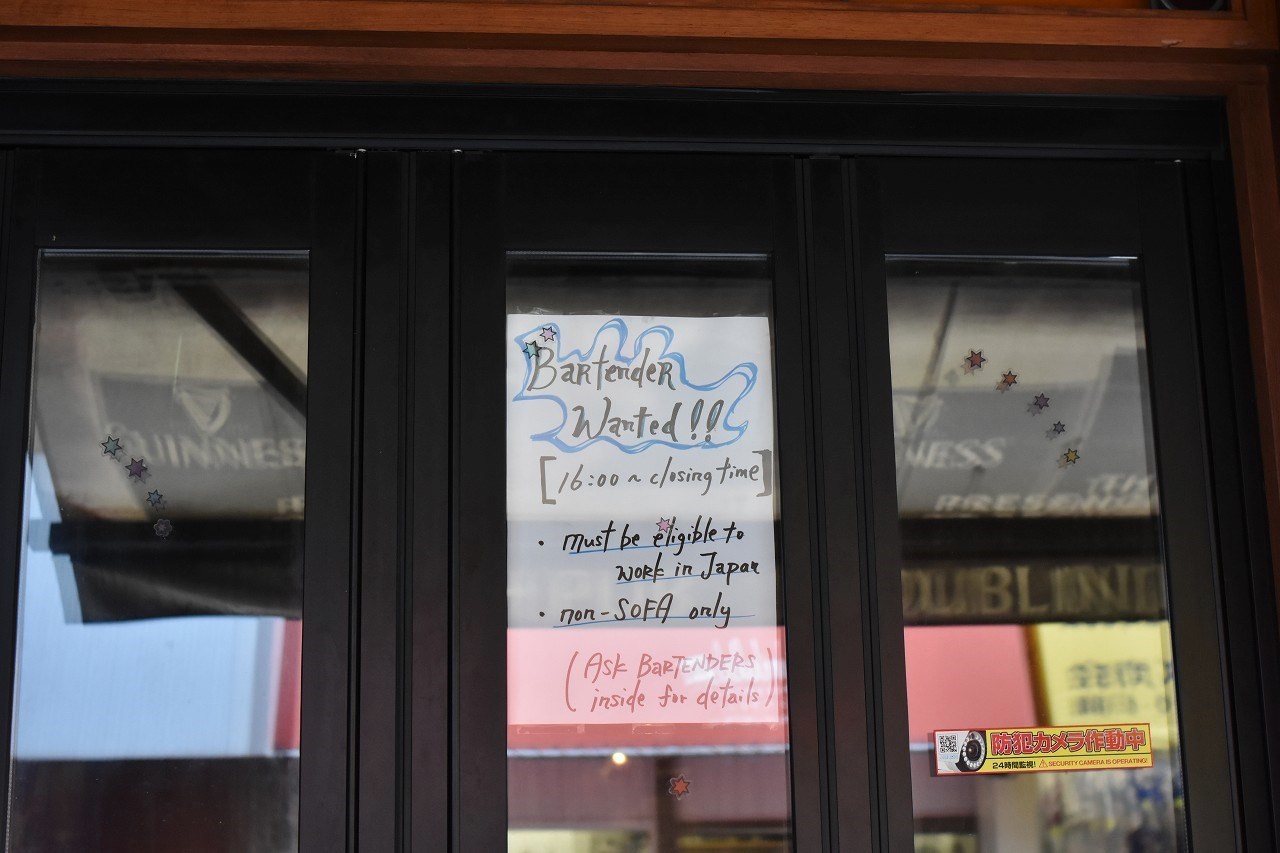 Bartender
Wanted!!
[16:00 ~ closing time]
• must be eligible to
work in Japan
• non-SOFA only
(Ask Bartenders
inside for details)
GUINNESS
NESS
PRESEN
DUBLIN
防犯カメラ作動中
24時間監視! ⚠SECURITY CAMERA IS OPERATING!